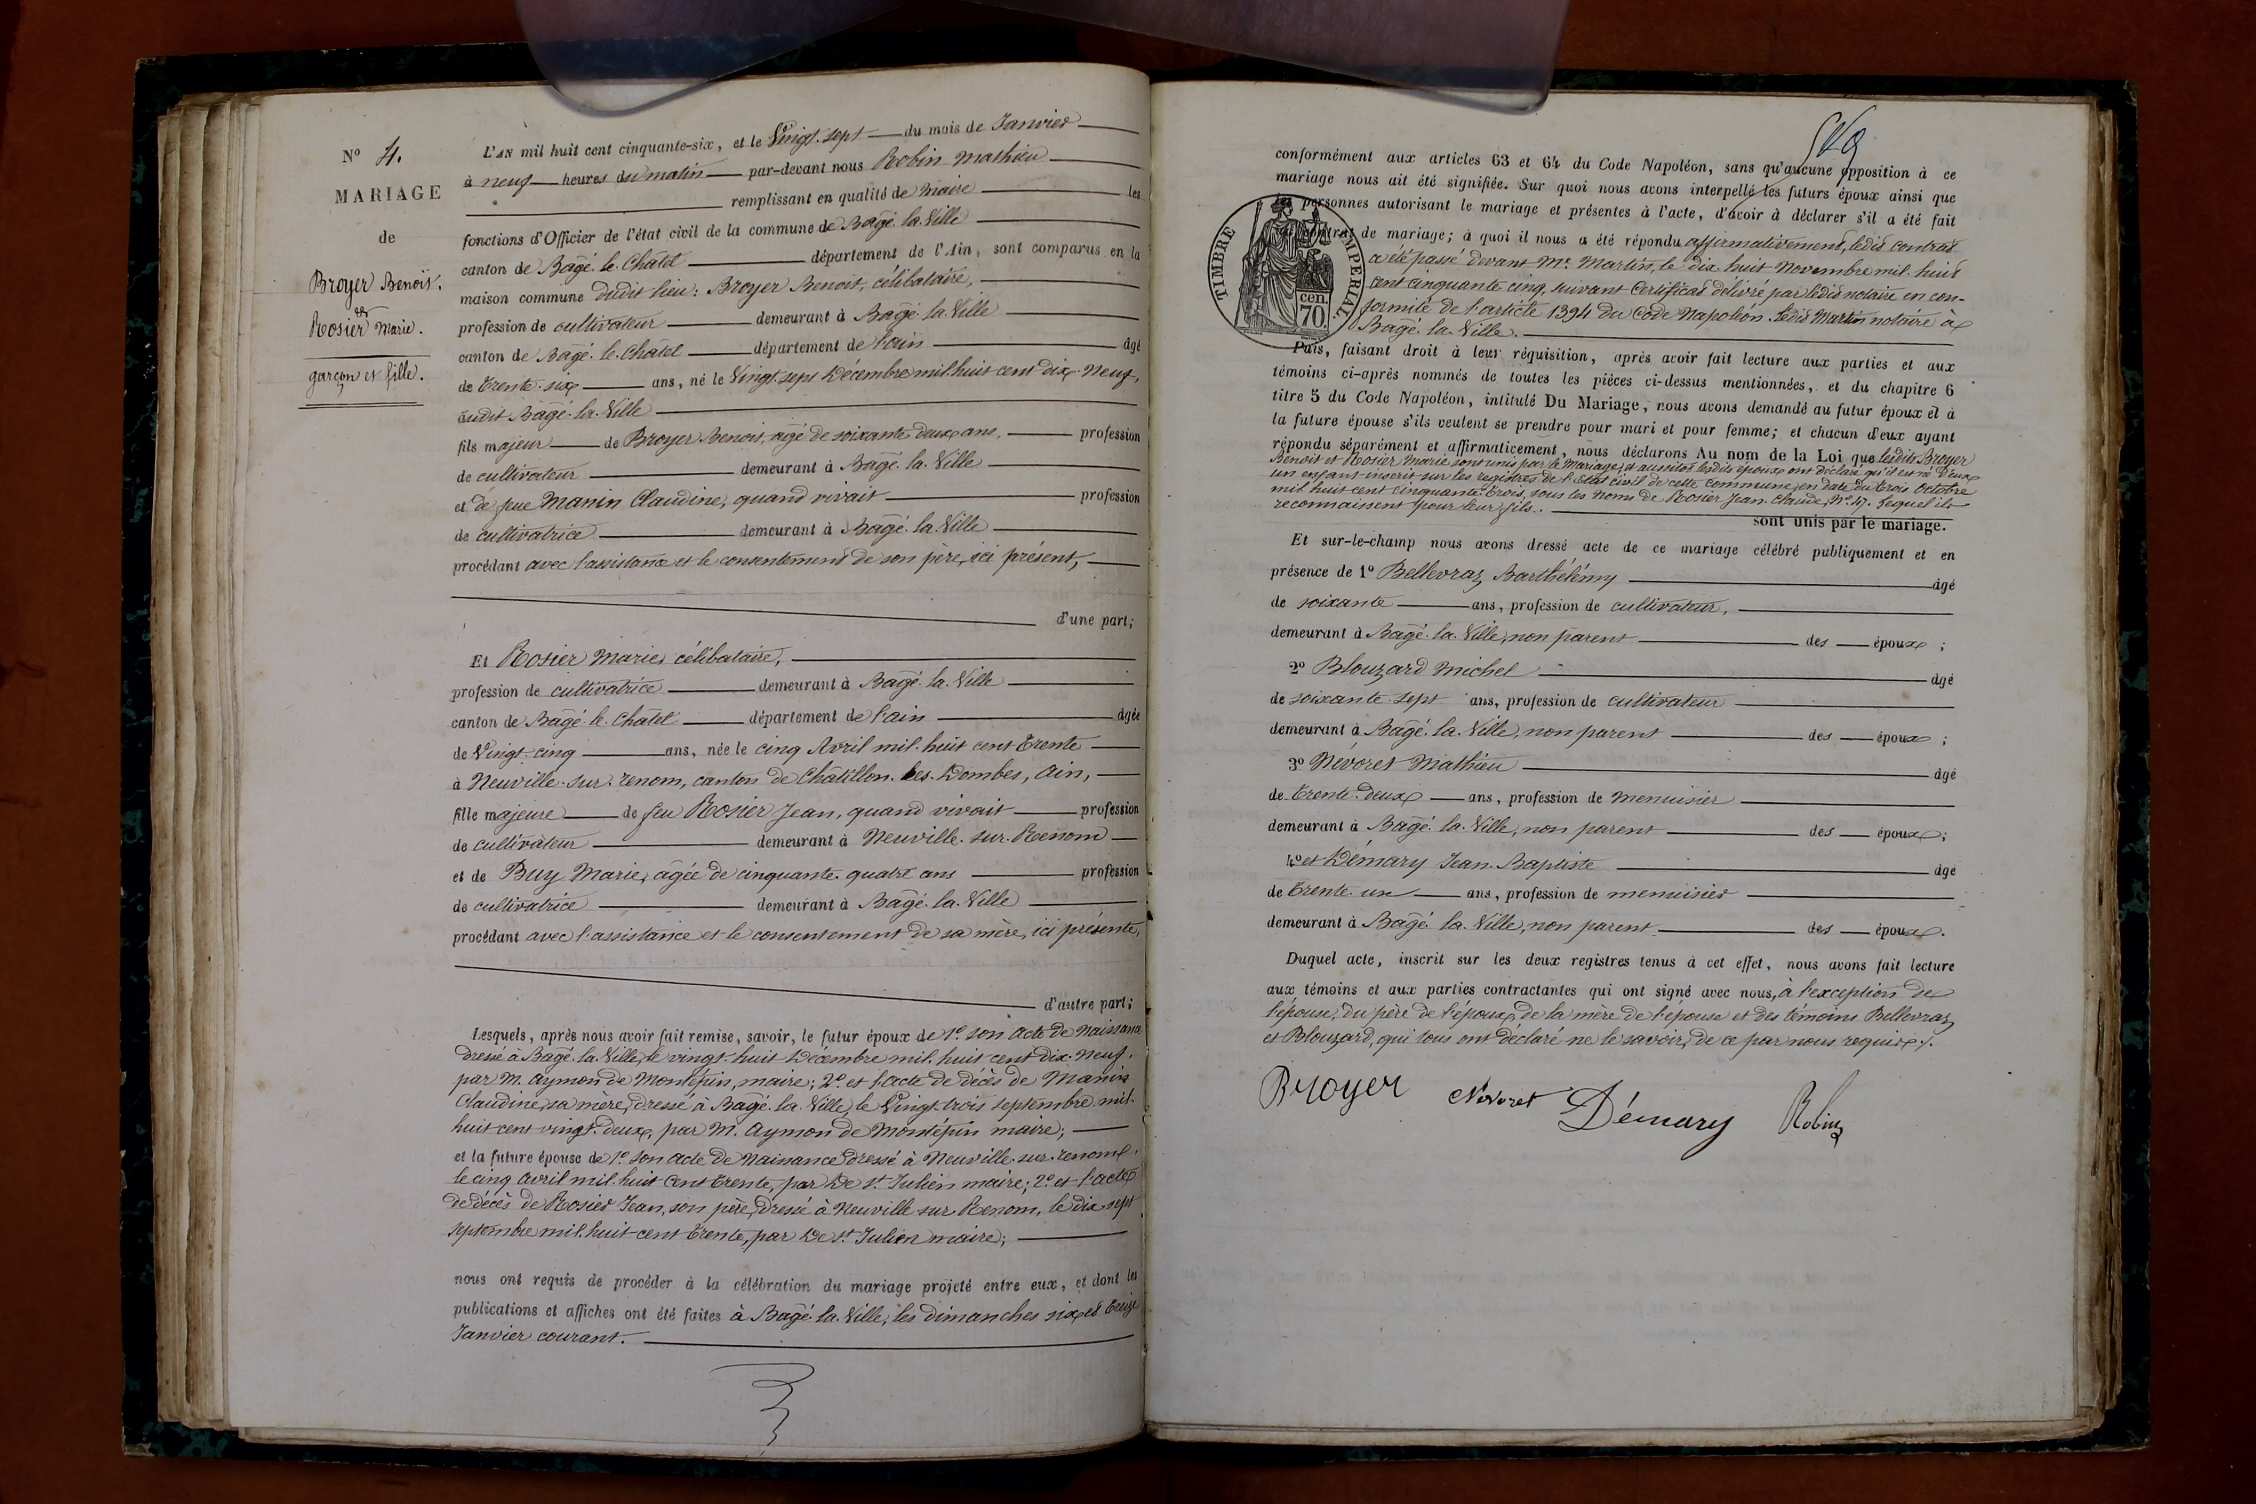 N° 4.
MARIAGE
de
Broyer Benoit.
et
Rosier Marie.
garçon et fille.
L'AN mil huit cent cinquante-six, et le Vingt. sept du mois de Janvier
à neuf heures du matin par-devant nous Robin Mathieu
remplissant en qualité de Maire les
fonctions d'Officier de l'état civil de la commune de Bagé. la. Ville
canton de Bagé. le. Chatel département de l'Ain, sont comparus en la
maison commune dudit lieu: Broyer Benoit, célibataire,
profession de cultivateur demeurant à Bagé. la. Ville
canton de Bagé. le. Chatel département de l'ain âgé
de Trente. six ans, né le Vingt sept Décembre mil. huit cent dix. Neuf,
audit Bagé. la. Ville
fils majeur de Broyer Benoit, agé de soixante deux ans, profession
de cultivateur demeurant à Bagé. la. Ville
et de feue Manin Claudine, quand vivait profession
de cultivatrice demeurant à Bagé. la. Ville
procédant avec l'assistance et le consentement de son père, ici présent,
d'une part;
Et Rosier Marie, célibataire,
profession de cultivatrice demeurant à Bagé. la. Ville
canton de Bagé. le. Chatel département de l'ain âgée
de Vingt. cinq ans, née le cinq Avril mil. huit cent Trente
à Neuville. sur. renom, canton de Châtillon. les. Dombes, Ain,
fille majeure de feu Rosier Jean, quand vivait profession
de cultivateur demeurant à Neuville. sur. Renom
et de Buy Marie, agée de cinquante. quatre ans profession
de cultivatrice demeurant à Bagé. la. Ville
procédant avec l'assistance et le consentement de sa mère, ici présente,
d'autre part;
Lesquels, après nous avoir fait remise, savoir, le futur époux de 1° son acte de Naissance
dressé à Bagé. la. Ville, le vingt. huit Décembre mil. huit cent dix. neuf,
par M. Aymon de Montépin, maire; 2° et l'acte de décès de Manin
Claudine, sa mère, dressé à Bagé. la. Ville, le Vingt. trois septembre mil.
huit cent vingt. deux, par M. Aymon de Montépin maire;
et la future épouse de 1° son acte de Naissance dressé à Neuville. sur. renom,
le cinq avril mil. huit cent trente, par De St Julien maire; 2° et l'acte
de décès de Rosier Jean, son père, dressé à Neuville sur Renom, le dix sept
septembre mil. huit cent trente, par De St Julien maire;
nous ont requis de procéder à la célébration du mariage projeté entre eux, et dont les
publications et affiches ont été faites à Bagé. la. Ville, les dimanches six et treize
Janvier courant.
conformément aux articles 63 et 64 du Code Napoléon, sans qu'aucune opposition à ce
mariage nous ait été signifiée. Sur quoi nous avons interpellé les futurs époux ainsi que
les personnes autorisant le mariage et présentes à l'acte, d'avoir à déclarer s'il a été fait
contrat de mariage; à quoi il nous a été répondu affirmativement, ledit contrat
a été passé devant Me Martin, le dix. huit Novembre mil. huit
cent cinquante cinq, suivant certificat délivré par ledit notaire en con-
formité de l'article 1394 du Code Napoléon. Ledit Martin notaire à
Bagé. la. Ville.
TIMBRE IMPERIAL.
70 cen.
Puis, faisant droit à leur réquisition, après avoir fait lecture aux parties et aux
témoins ci-après nommés de toutes les pièces ci-dessus mentionnées, et du chapitre 6
titre 5 du Code Napoléon, intitulé Du Mariage, nous avons demandé au futur époux et à
la future épouse s'ils veulent se prendre pour mari et pour femme; et chacun d'eux ayant
répondu séparément et affirmativement, nous déclarons Au nom de la Loi que lesdits Broyer
Benoit et Rosier Marie sont unis par le Mariage; et aussitôt lesdits époux ont déclaré qu'il est né d'eux
un enfant inscrit sur les registres de l'Etat civil de cette commune, en date du trois Octobre
mil huit cent cinquante. trois, sous les noms de Rosier Jean. Claude, N° 47. Lequel ils
reconnaissent pour leur fils.
sont unis par le mariage.
Et sur-le-champ nous avons dressé acte de ce mariage célébré publiquement et en
présence de 1° Bellevraz Barthélémy âgé
de soixante ans, profession de cultivateur,
demeurant à Bagé. la. Ville, non parent des époux;
2° Blouzard Michel âgé
de soixante. sept ans, profession de cultivateur
demeurant à Bagé. la. Ville, non parent des époux;
3° Névoret Mathieu âgé
de Trente. deux ans, profession de menuisier
demeurant à Bagé. la. Ville, non parent des époux;
4° et Démary Jean. Baptiste âgé
de Trente. un ans, profession de menuisier
demeurant à Bagé. la. Ville, non parent des époux.
Duquel acte, inscrit sur les deux registres tenus à cet effet, nous avons fait lecture
aux témoins et aux parties contractantes qui ont signé avec nous, à l'exception de
l'épouse, du père de l'époux, de la mère de l'épouse et des témoins Bellevraz
et Blouzard, qui tous ont déclaré ne le savoir, de ce par nous requis.
Broyer Névoret Démary Robin